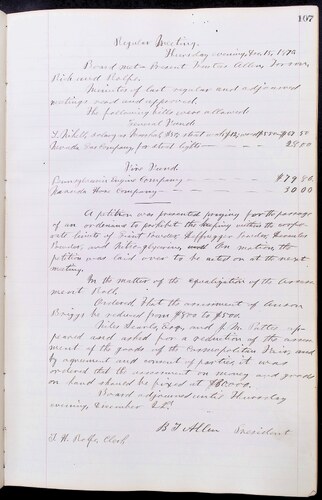 107
Regular Meeting.
Thursday evening, Dec 18, 1873
Board met. Present Trustees Allen,
Rich and Rolfe.
Minutes of last regular and adjourned
meetings read and approved.
The following bills were allowed.
General Fund
Nevada Gas Company for street lights — 28.00
Fire Fund.
Pennsylvania Engine Company — $79.86
Nevada Hose Company — 30.00
A petition was presented praying for the passage
of an ordinance to prohibit the keeping within the corpo-
rate limits of Giant Powder, Hercules
Powder, and Nitro-glycerine, and On motion the
petition was laid over to be acted on at the next
meeting.
In the matter of the Equalization of the Assess-
ment Roll.
Ordered that the assessment of
Briggs be reduced from $800 to $500.
Niles Searls, Esq. and J. M. ap-
peared and asked for a reduction of the assess-
ment of the goods of the Cosmopolitan Store, and
by agreement and consent of parties, it was
ordered that the assessment on money and goods
on hand should be fixed at
Board adjourned until Thursday
evening, December
B J Allen President
T. H. Rolfe Clerk